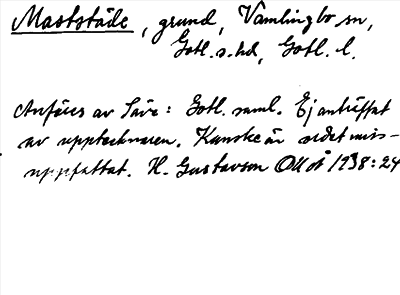 Maststäde, grund, Vamlingbo sn,
Gotl. s. hd, Gotl. l.
Anföres av Säve: Gotl. saml. Ej anträffat
av upptecknaren. Kanske är ordet miss-
uppfattat. H. Gustavson OUÅ 1938:24